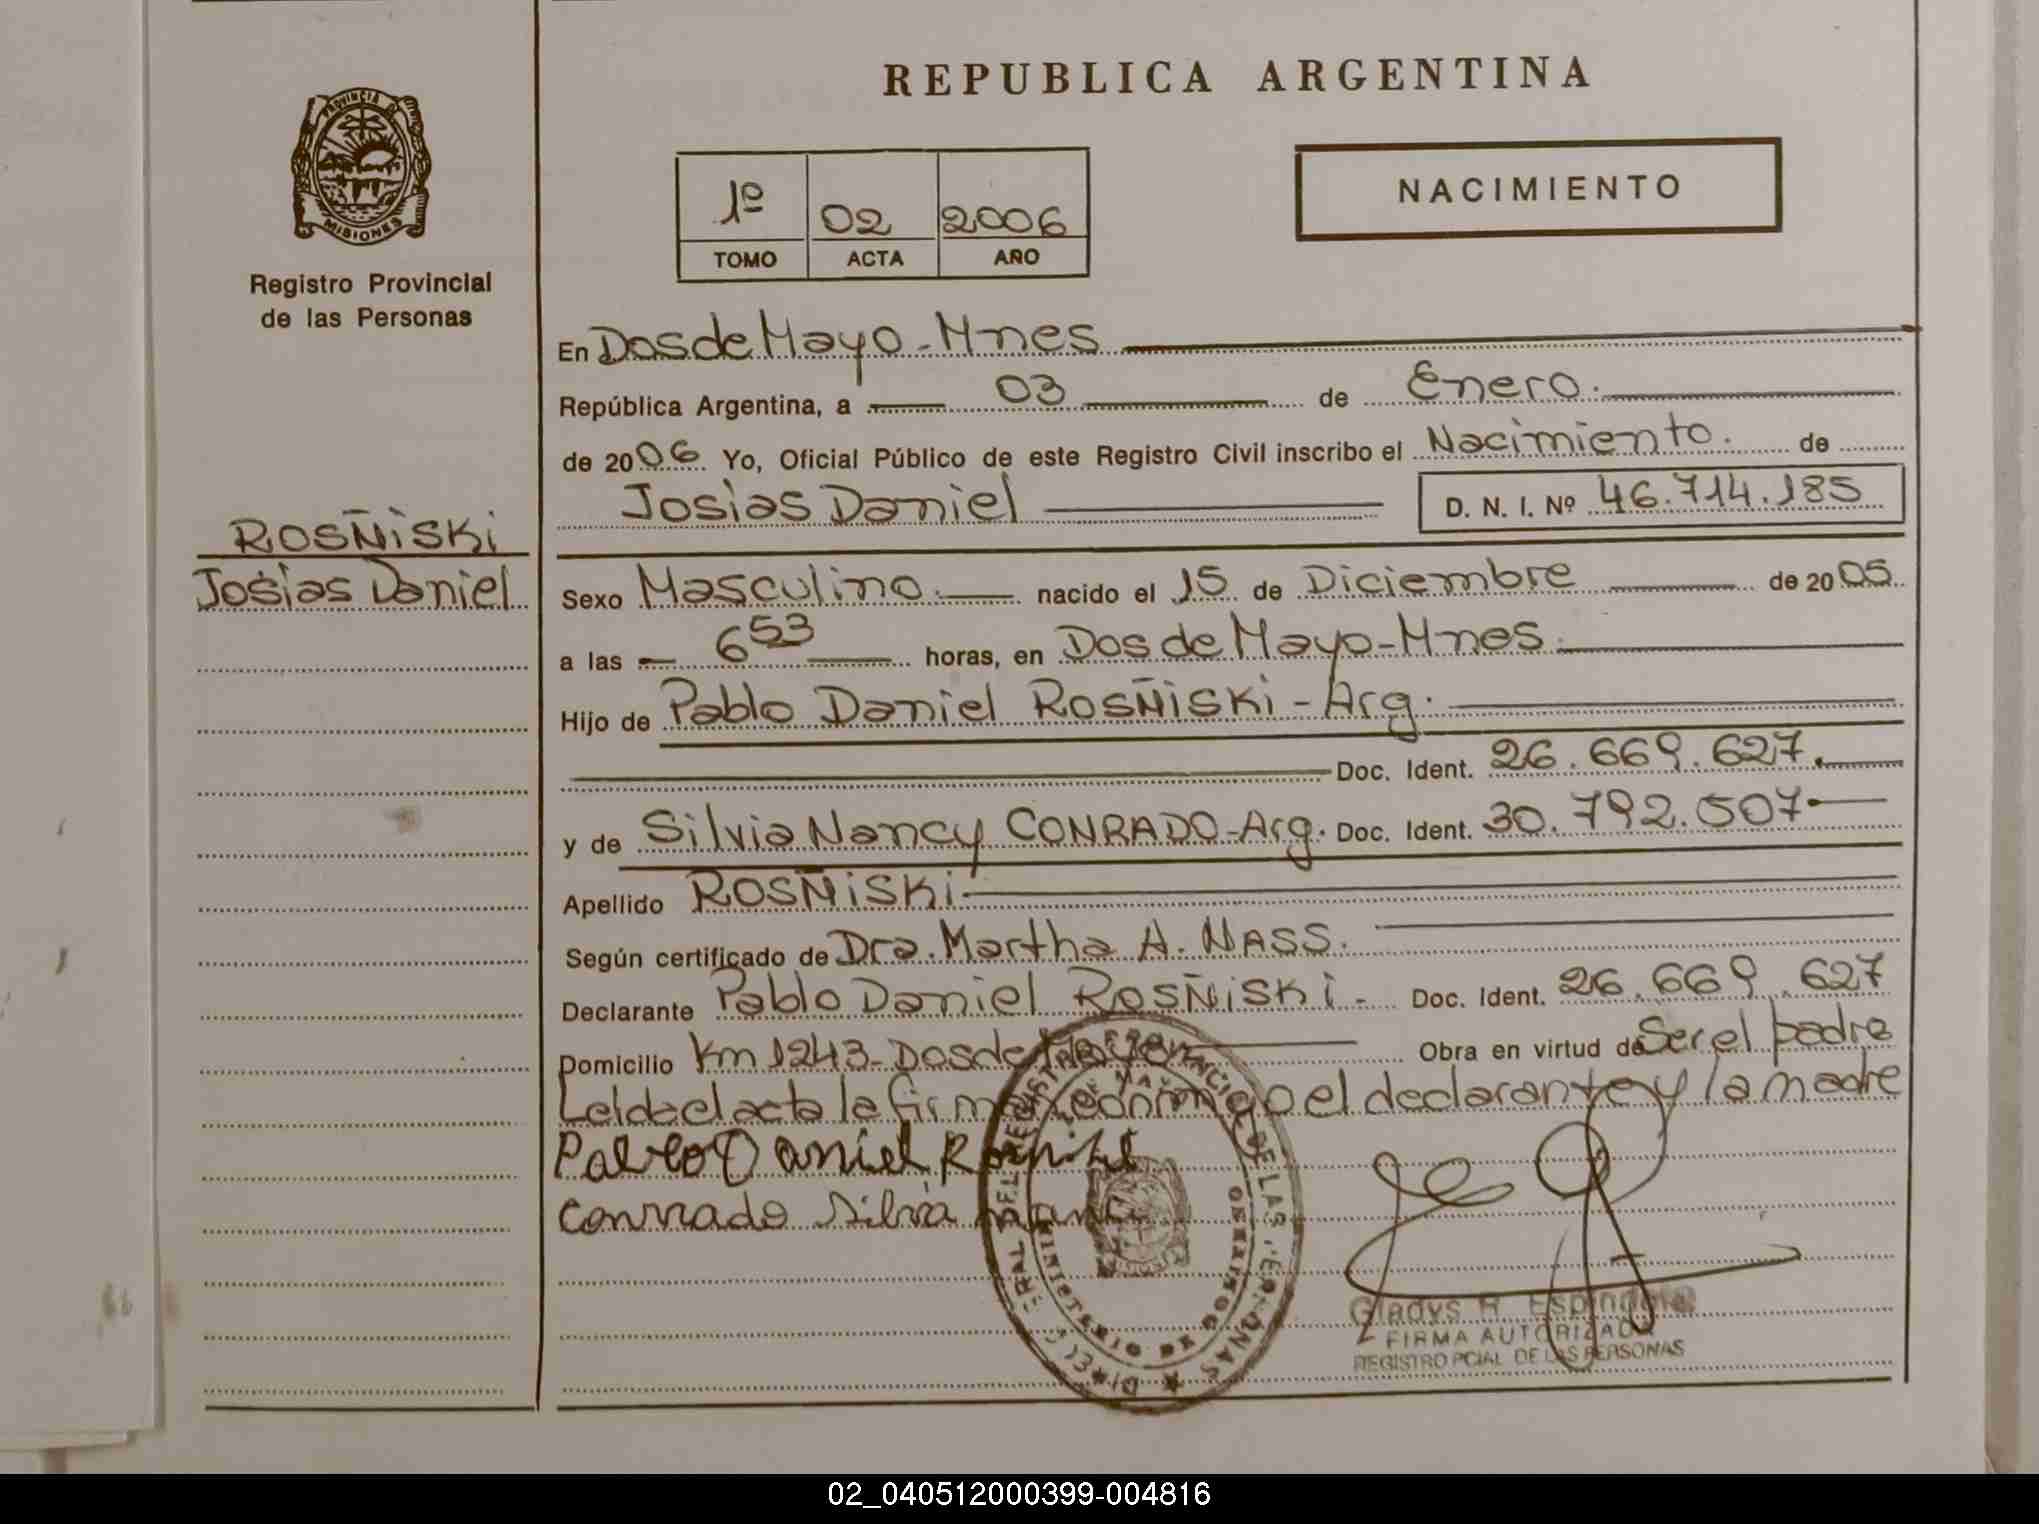 REPUBLICA ARGENTINA
PROVINCIA DE
MISIONES
Registro Provincial
de las Personas
1º 02 2006
TOMO ACTA AÑO
NACIMIENTO
En Dos de Mayo - Mnes
República Argentina, a 03 de Enero.
de 2006 Yo, Oficial Público de este Registro Civil inscribo el Nacimiento. de
Josias Daniel D. N. I. Nº 46.714.185
ROSÑiSKi
Josias Daniel
Sexo Masculino. nacido el 15 de Diciembre de 2005
a las 6 53 horas, en Dos de Mayo - Mnes.
Hijo de Pablo Daniel ROSÑiSKi - Arg.
Doc. Ident. 26.669.627.
y de Silvia Nancy CONRADO - Arg. Doc. Ident. 30.792.507
Apellido ROSÑiSKi
Según certificado de Dra. Martha A. NASS.
Declarante Pablo Daniel ROSÑiSKi - Doc. Ident. 26.669.627
Domicilio Km 1243 - Dos de Mayo Obra en virtud de Ser el padre
Leida el acta la firman conmigo el declarante y la madre
Pablo Daniel
Conrado Silvia
DIREC. GRAL. DEL REGISTRO PROVINCIAL DE LAS PERSONAS
MINISTERIO DE GOBIERNO
DE MAYO
Gladys R. Espindola
FIRMA AUTORIZADA
REGISTRO PCIAL DE LAS PERSONAS
02_040512000399-004816